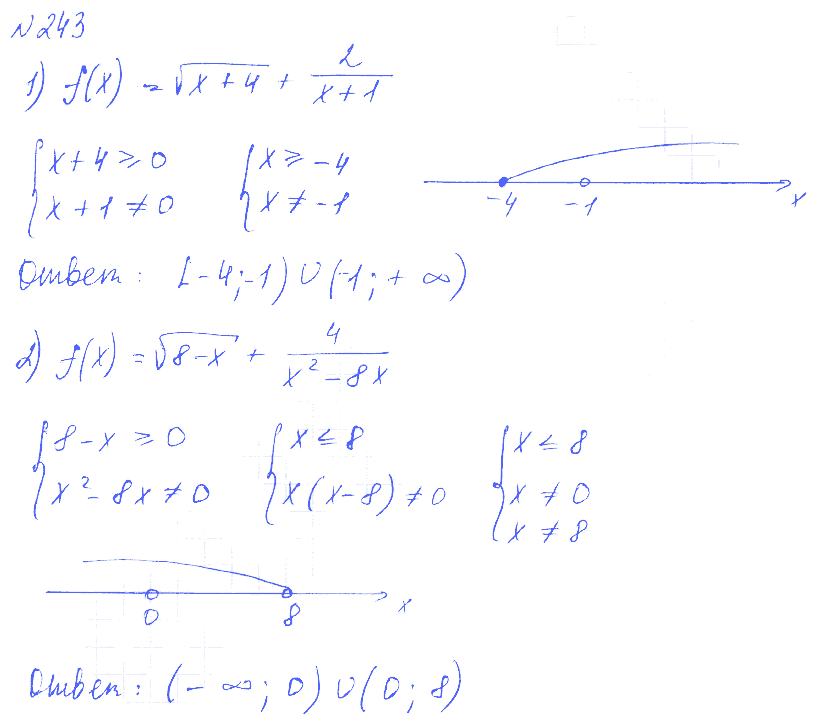 N243
1) f(x) = √(x+4) + 2/(x+1)
{ x+4 ≥ 0 { x ≥ -4
{ x+1 ≠ 0 { x ≠ -1
-4 -1 x
Ответ: [-4;-1) ∪ (-1; +∞)
2) f(x) = √(8-x) + 4/(x²-8x)
{ 8-x ≥ 0 { x ≤ 8 { x ≤ 8
{ x²-8x ≠ 0 { x(x-8) ≠ 0 { x ≠ 0
{ x ≠ 8
0 8 x
Ответ: (-∞; 0) ∪ (0; 8)